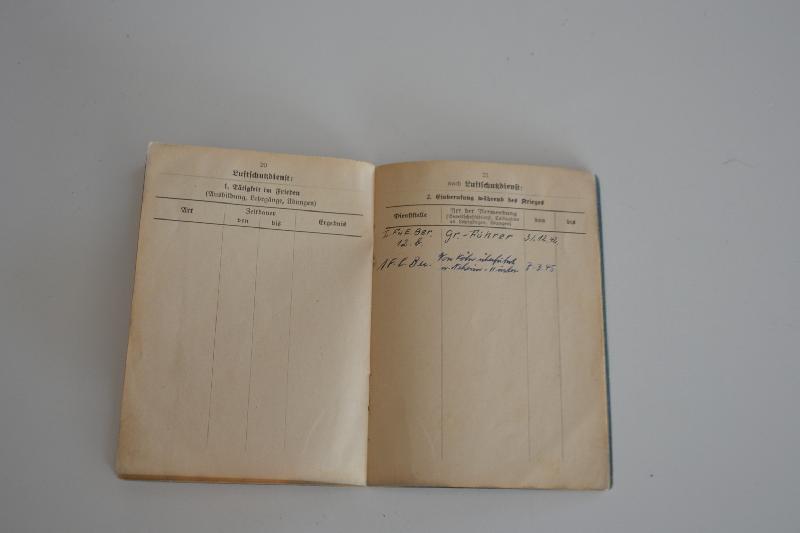 20
Luftschutzdienst:
1. Tätigkeit im Frieden
(Ausbildung, Lehrgänge, Übungen)
Art
Zeitdauer
von bis
Ergebnis
21
noch Luftschutzdienst:
2. Einberufung während des Krieges
Dienststelle
Art der Verwendung
von
bis
12. 6. Gr.-Führer 31.12.42.
Von Köln überführt
8.3.45